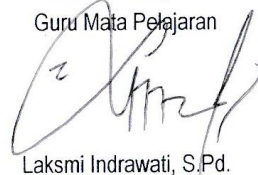 Guru Mata Pelajaran
Laksmi Indrawati, S.Pd.